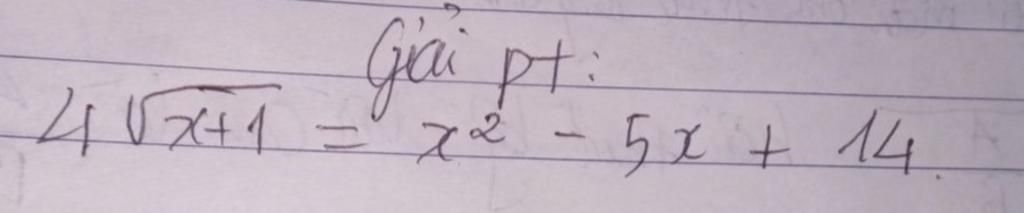 Giải pt:
4√(x+1) = x² - 5x + 14.